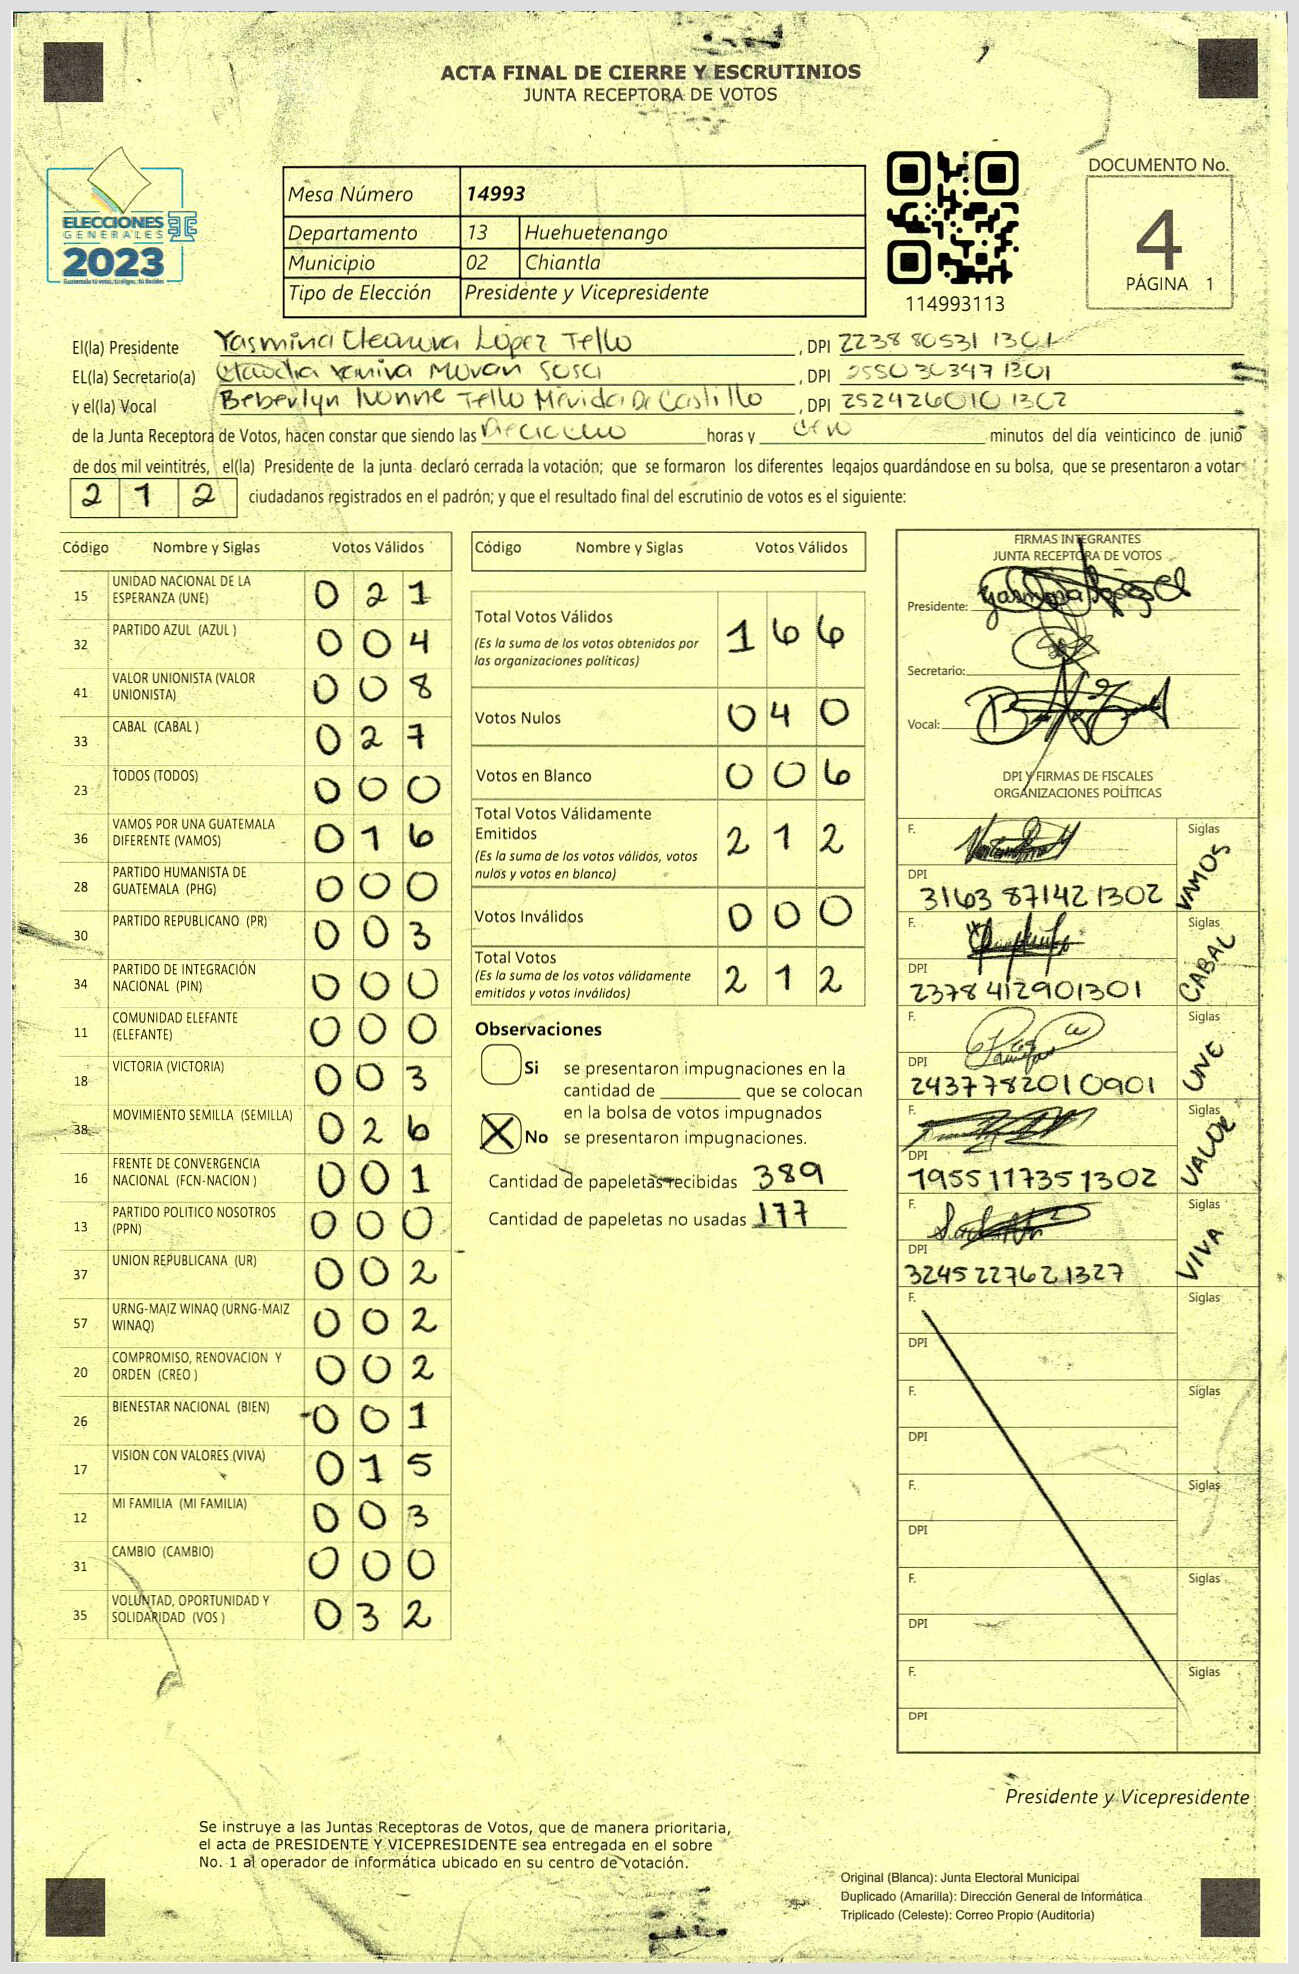 ACTA FINAL DE CIERRE Y ESCRUTINIOS
JUNTA RECEPTORA DE VOTOS
ELECCIONES
GENERALES
2023
Mesa Número 14993
Departamento 13 Huehuetenango
Municipio 02 Chiantla
Tipo de Elección Presidente y Vicepresidente
114993113
DOCUMENTO No.
4
PÁGINA 1
El(la) Presidente Yasmina Eleonora López Tello, DPI 2238 80531 1301
EL(la) Secretario(a) Claudia Moran Sosa, DPI 0550 30347 1301
y el(la) Vocal Beberlyn Ivonne Tello Mérida De Castillo, DPI 2524260101302
de la Junta Receptora de Votos, hacen constar que siendo las Dieciocho horas y cero minutos del día veinticinco de junio
de dos mil veintitrés, el(la) Presidente de la junta declaró cerrada la votación; que se formaron los diferentes legajos quardándose en su bolsa, que se presentaron a votar
212 ciudadanos registrados en el padrón; y que el resultado final del escrutinio de votos es el siguiente:
Código Nombre y Siglas Votos Válidos
15 UNIDAD NACIONAL DE LA ESPERANZA (UNE) 021
32 PARTIDO AZUL (AZUL ) 004
41 VALOR UNIONISTA (VALOR UNIONISTA) 008
33 CABAL (CABAL ) 027
23 TODOS (TODOS) 000
36 VAMOS POR UNA GUATEMALA DIFERENTE (VAMOS) 016
28 PARTIDO HUMANISTA DE GUATEMALA (PHG) 000
30 PARTIDO REPUBLICANO (PR) 003
34 PARTIDO DE INTEGRACIÓN NACIONAL (PIN) 000
11 COMUNIDAD ELEFANTE (ELEFANTE) 000
18 VICTORIA (VICTORIA) 003
38 MOVIMIENTO SEMILLA (SEMILLA) 026
16 FRENTE DE CONVERGENCIA NACIONAL (FCN-NACION ) 001
13 PARTIDO POLITICO NOSOTROS (PPN) 000
37 UNION REPUBLICANA (UR) 002
57 URNG-MAIZ WINAQ (URNG-MAIZ WINAQ) 002
20 COMPROMISO, RENOVACION Y ORDEN (CREO ) 002
26 BIENESTAR NACIONAL (BIEN) 001
17 VISION CON VALORES (VIVA) 015
12 MI FAMILIA (MI FAMILIA) 003
31 CAMBIO (CAMBIO) 000
35 VOLUNTAD, OPORTUNIDAD Y SOLIDARIDAD (VOS ) 032
Código Nombre y Siglas Votos Válidos
Total Votos Válidos 166
(Es la suma de los votos obtenidos por
las organizaciones políticas)
Votos Nulos 040
Votos en Blanco 006
Total Votos Válidamente
Emitidos 212
(Es la suma de los votos válidos, votos
nulos y votos en blanco)
Votos Inválidos 000
Total Votos 212
(Es la suma de los votos válidamente
emitidos y votos inválidos)
Observaciones
Si se presentaron impugnaciones en la
cantidad de ________ que se colocan
en la bolsa de votos impugnados
X No se presentaron impugnaciones.
Cantidad de papeletas recibidas 389
Cantidad de papeletas no usadas 177
FIRMAS INTEGRANTES
JUNTA RECEPTORA DE VOTOS
Presidente:
Secretario:
Vocal:
DPI Y FIRMAS DE FISCALES
ORGANIZACIONES POLÍTICAS
F. Siglas VAMOS
DPI 3163 87142 1302
F. Siglas CABAL
DPI 2378 412901301
F. Siglas UNE
DPI 2437782010901
F. Siglas VALOR
DPI 1955 11735 1302
F. Siglas VIVA
DPI 3245 22762 1327
F. Siglas
DPI
F. Siglas
DPI
F. Siglas
DPI
F. Siglas
DPI
F. Siglas
DPI
Presidente y Vicepresidente
Se instruye a las Juntas Receptoras de Votos, que de manera prioritaria,
el acta de PRESIDENTE Y VICEPRESIDENTE sea entregada en el sobre
No. 1 al operador de informática ubicado en su centro de votación.
Original (Blanca): Junta Electoral Municipal
Duplicado (Amarilla): Dirección General de Informática
Triplicado (Celeste): Correo Propio (Auditoria)